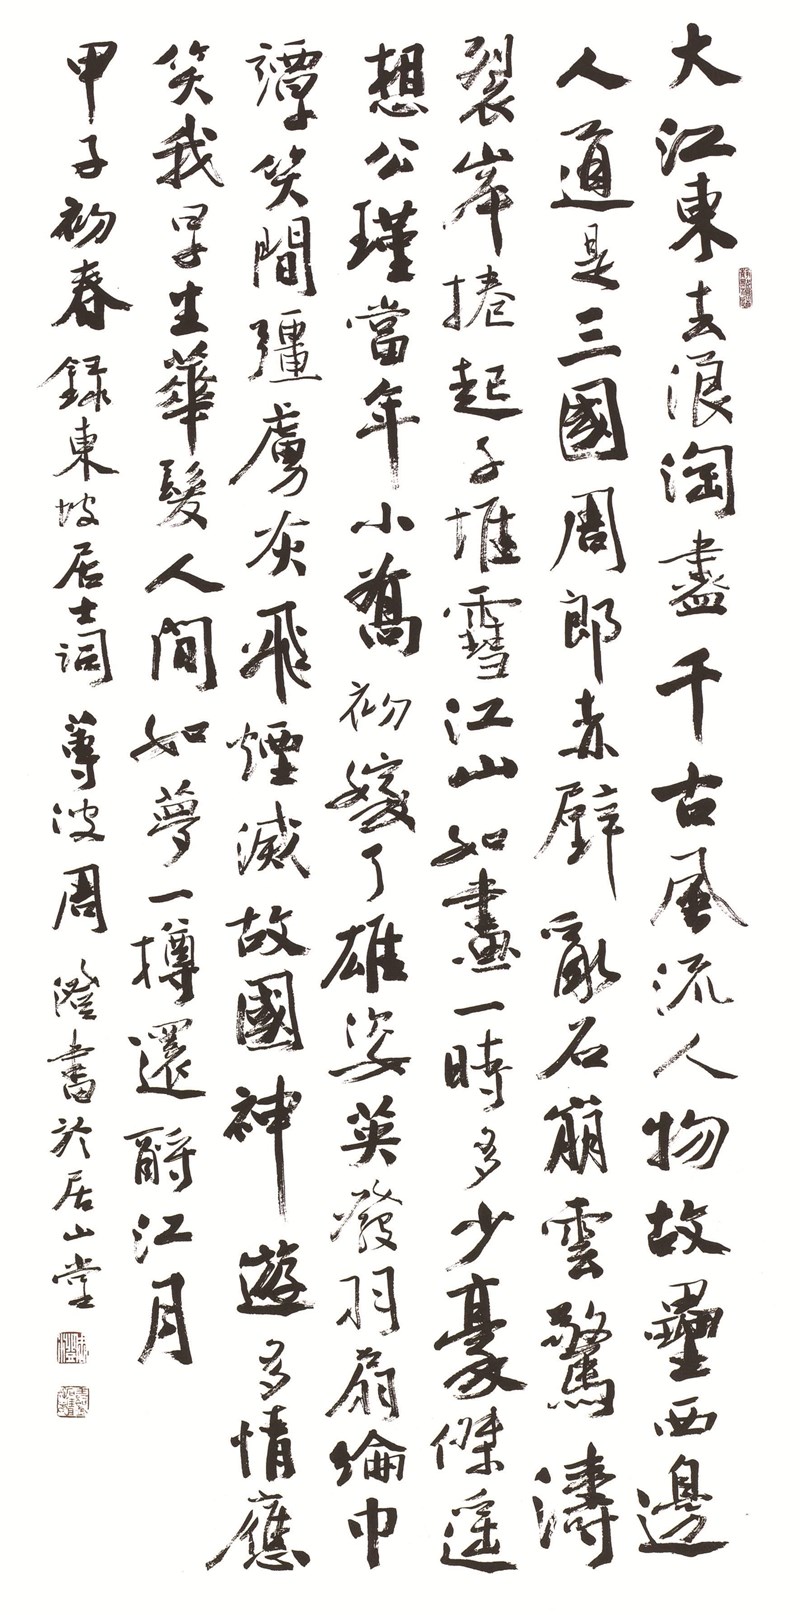 大江東去浪淘盡千古風流人物故壘西邊
人道是三國周郎赤壁亂石崩雲驚濤
裂岸捲起千堆雪江山如畫一時多少豪傑遥
想公瑾當年小喬初嫁了雄姿英發羽扇綸巾
譚笑間彊虜灰飛煙滅故國神遊多情應
笑我早生華髮人間如夢一樽還酹江月
甲子初春録東坡居士詞 蓴波周澄書於居山堂